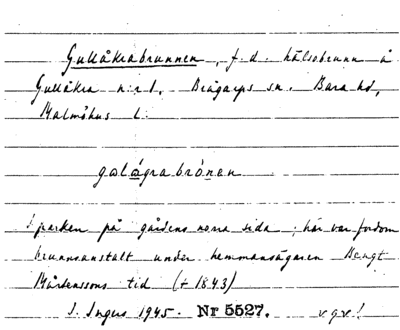 Gullåkrabrunnen, f.d. hälsobrunn å
Gullåkra n:r 1, Brågarps sn. Bara hd,
Malmöhus l.
galágrabrónen
I parken på gårdens norra sida; här var fordom
brunnsanstalt under hemmansägaren Bengt
Mårtenssons tid (+ 1843)
J. Ingers 1945. Nr 5527. v.gr.!